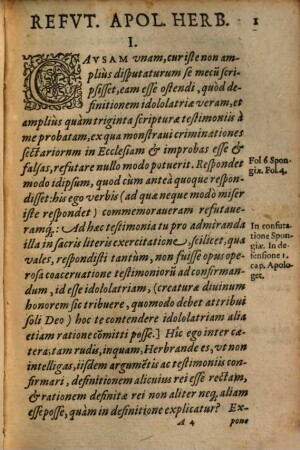 REFVT. APOL. HERB. 1
I.
CAVSAM vnam, cur iste non am-
plius disputaturum se mecū scri-
psisset, eam esse ostendi, quòd de-
finitionem idololatriæ veram, et
amplius quàm triginta scripturæ testimoniis à
me probatam, ex qua monstraui criminationes
sectariornm in Ecclesiam & improbas esse &
falsas, refutare nullo modo potuerit. Respondet
modo idipsum, quod cùm anteà quoque respon-
disset: his ego verbis (ad quæ neque modò miser
iste respondet) commemoraueram refutaue-
ramq;: Ad hæc testimonia tu pro admiranda
illa in sacris literis exercitatione, scilicet, qua
vales, respondisti tantùm, non fuisse opus opero-
sa coaceruatione testimoniorū ad confirman-
dum, id esse idololatriam, (creaturæ diuinum
honorem sic tribuere, quomodo debet attribui
soli Deo) hoc te contendere idololatriam alia
etiam ratione cōmitti posse.] Hîc ego inter cæ-
tera: tam rudis, inquam, Herbrande es, vt non
intelligas, iisdem argumētis ac testimoniis con-
firmari, definitionem alicuius rei esse rectam,
& rationem definitæ rei non aliter neq; aliam
esse posse, quàm in definitione explicatur? Ex-
A 4 pone
Fol 6 Spon-
giæ. Fol. 4.
In confuta-
tione Spon-
giæ. In de-
fensione 1.
cap. Apolo-
get.